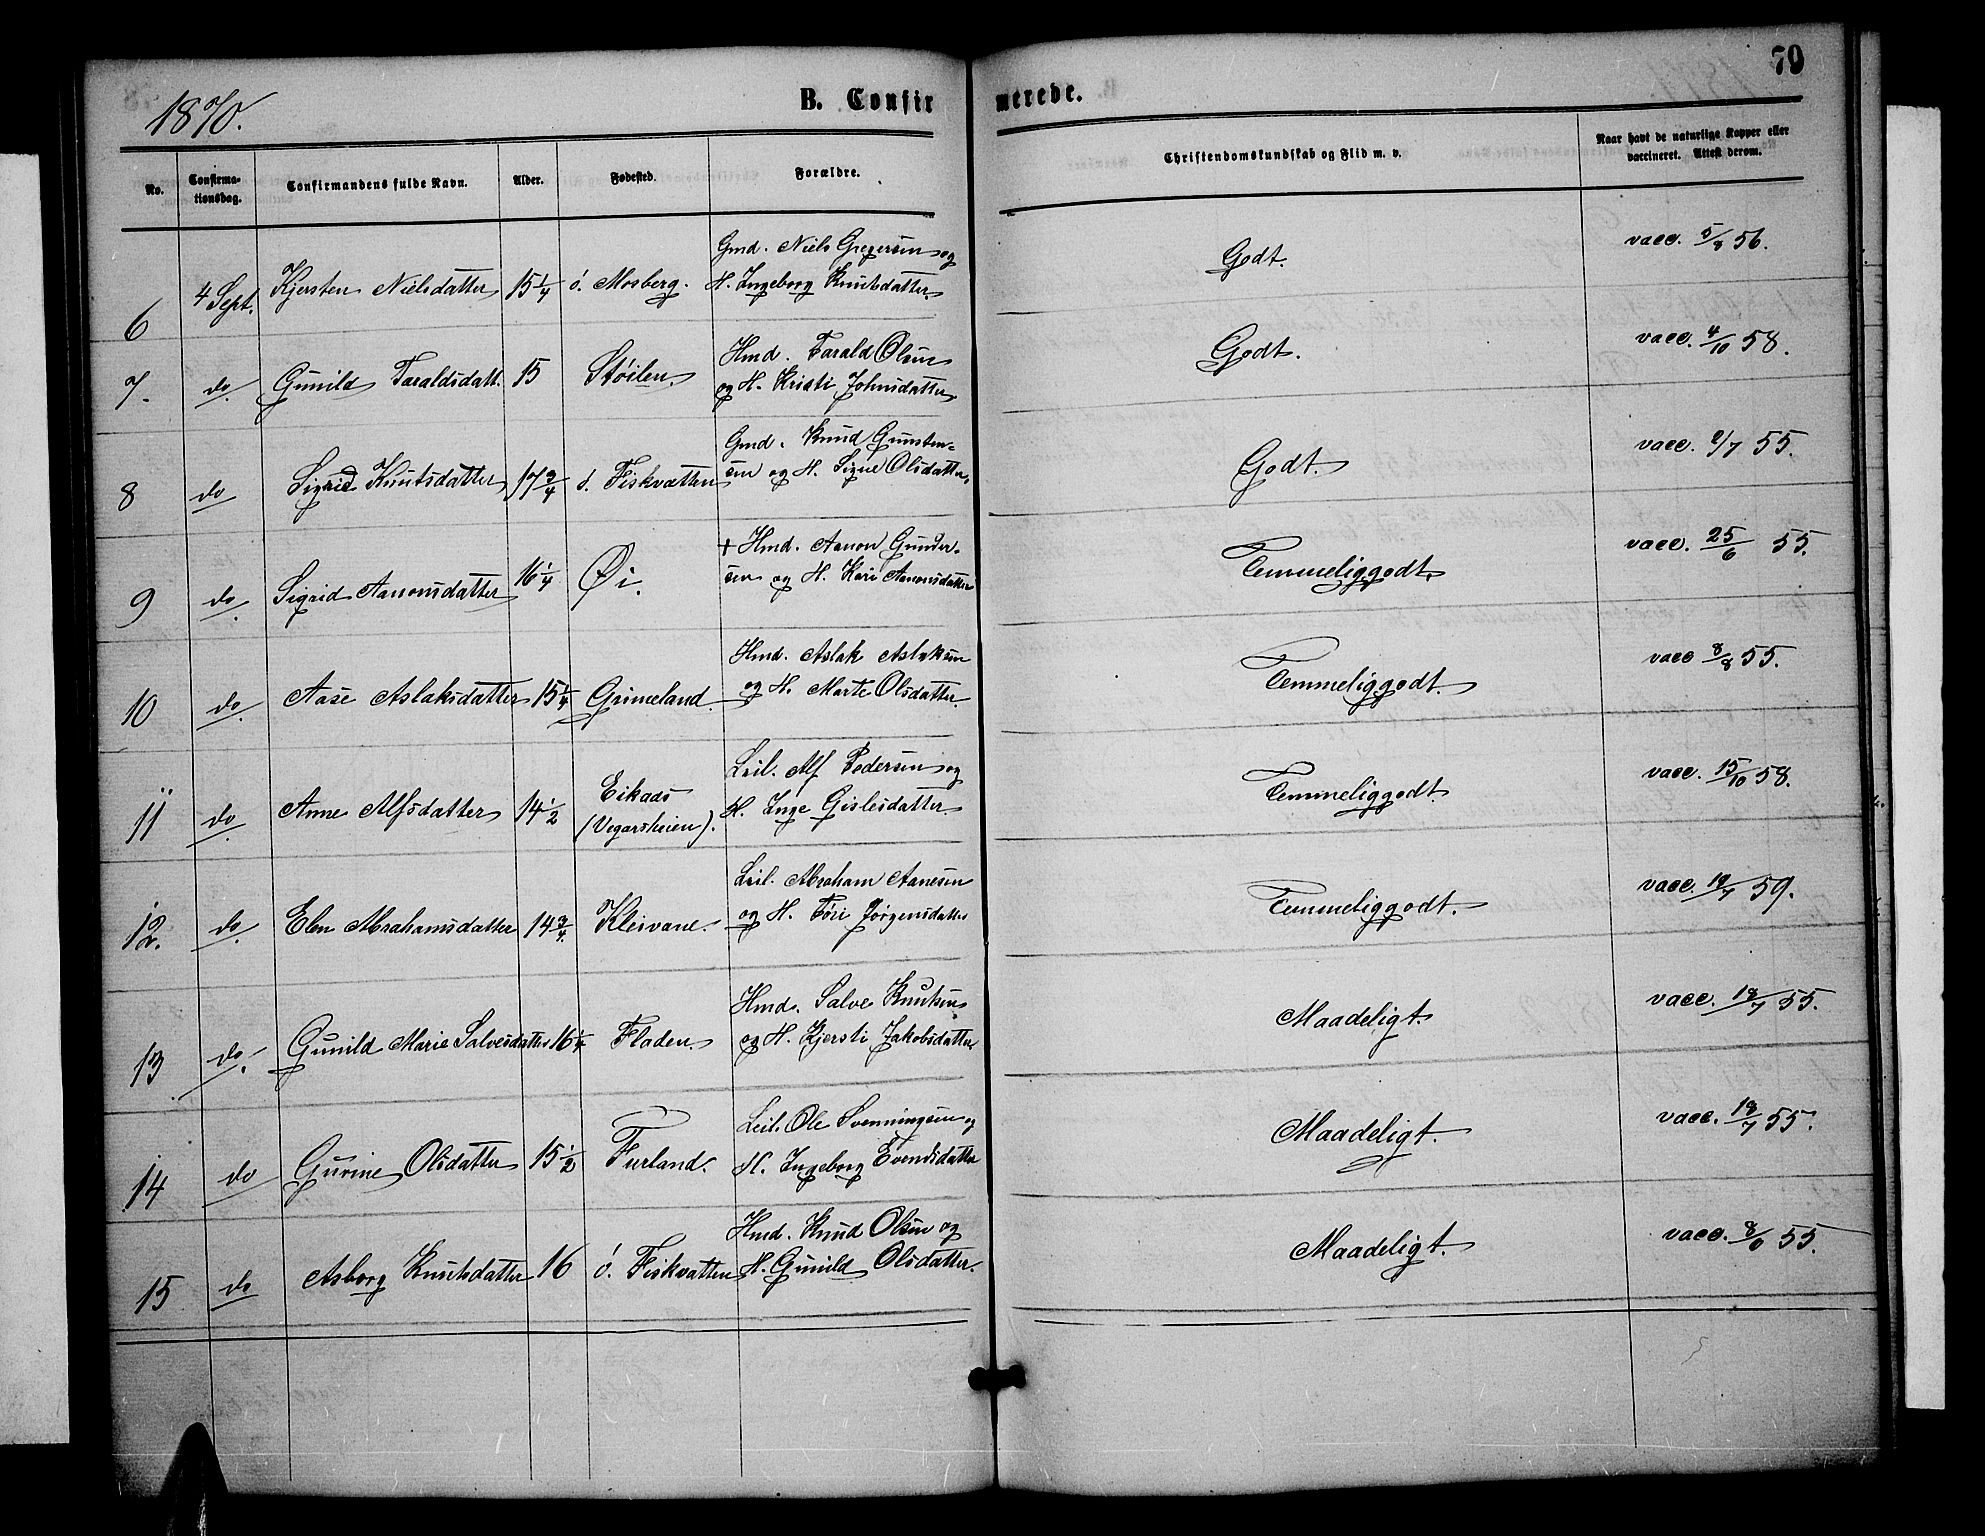 1870.
B. Confirmerede.
79
No.
Confirma-
tionsdag.
Confirmandens fulde Navn.
Alder.
Fødested.
Forældre.
Christendomskundskab og Flid m. v.
Naar havt de naturlige Kopper eller
vaccineret. Attest derom.
6 4 Sept. Kjersten Nielsdatter 15 1/4 ó. Mosberg. Gmd. Niels Gregersen og
H. Ingeborg Knutsdatter. Godt. vacc. 5/8 56.
7. do Gunild Taraldsdatt. 15 Støilen Hmd. Tarald Olsen
og H. Kristi Johnsdatter Godt. vacc. 4/10 58.
8 do Sigrid Knutsdatter 17 3/4 ó. Fiskvatten Gmd. Knud Gunsten-
sen og H. Signe Olsdatter. Godt. vacc. 2/7 55.
9 do Sigrid Aanonsdatter 16 1/4 Øi. + Hmd. Aanon Gunder-
sen og H. Kari Aanonsdatter Temmeliggodt. vacc. 25/6 55.
10 do Aase Aslaksdatter 15 1/4 Grimeland Hmd. Aslak Aslaksen
og H. Marte Olsdatter Temmeliggodt. vacc 8/8 55.
11 do Anne Alfsdatter 14 1/2 Eikaas
(Vegarsheien). Leil. Alf Pedersen og
H. Inge Gislesdatter Temmeliggodt. vacc. 15/10 58.
12. do Elen Abrahamsdatter 14 3/4. Kleivane. Leil. Abraham Aanesen
og H. Töri Jörgensdatter Temmeliggodt. vacc. 19/7 59.
13 do. Gunild Marie Salvesdatter 16 1/4 Fladen. Hmd. Salve Knutsen
og H. Kjersti Jakobsdatter Maadeligt. vacc. 18/7 55.
14 do Gurine Olsdatter 15 1/2 Furland. Leil. Ole Svenningsen og
H. Ingeborg Evendsdatter Maadeligt. vacc. 18/7 55.
15 do Asborg Knutsdatter 16 ó. Fiskvatten Hmd. Knud Olsen og
H. Gunild Olsdatter. Maadeligt. vacc. 55.